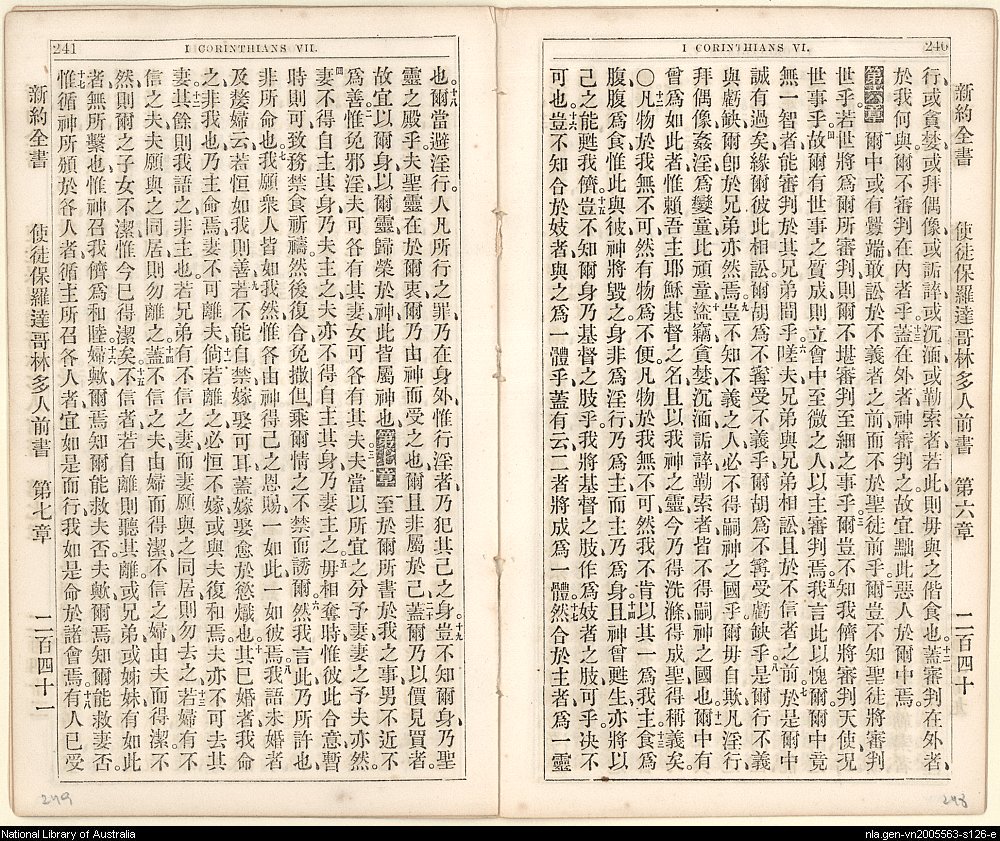 240
I CORINTHIANS VI.
新約全書 使徒保羅達哥林多人前書 第六章 二百四十
行、或貪婪、或拜偶像、或詬誶、或沉湎、或勒索者、若此則毋與之偕食也。十二蓋審判在外者、
於我何與、爾不審判在內者乎。十三蓋在外者神審判之、故宜黜此惡人於爾中焉。
第六章 一爾中或有釁端、敢訟於不義者之前、而不於聖徒前乎。二爾豈不知聖徒將審判
世乎、若世將爲爾所審判、則爾不堪審判至細之事乎。三爾豈不知我儕將審判天使、況
世事乎。四故爾有世事之質成、則立會中至微之人、以主審判焉。五我言此以愧爾、爾中竟
無一智者、能審判於其兄弟間乎。六嗟夫、兄弟與兄弟相訟、且於不信者之前。七於是爾中
誠有過矣、緣爾彼此相訟、爾胡爲不寗受不義乎、爾胡爲不寗受虧缺乎。八是爾行不義
與虧缺、爾卽於兄弟亦然焉。九豈不知不義之人、必不得嗣神之國乎、爾毋自欺、凡淫行、
拜偶像、姦淫、爲孌童、比頑童、十盜竊、貪婪、沉湎、詬誶、勒索者、皆不得嗣神之國也。十一爾中有
曾爲如此者、惟賴吾主耶穌基督之名、且以我神之靈、今乃得洗滌、得成聖、得稱義矣。
○十二凡物於我無不可、然有物爲不便、凡物於我無不可、然我不肯以其一爲我主。十三食爲
腹、腹爲食、惟此與彼神將毀之、身非爲淫行、乃爲主、而主乃爲身。十四且神曾甦生、亦將以
己之能甦我儕。十五豈不知爾身乃基督之肢乎、我將基督之肢、作爲妓者之肢可乎、决不
可也。十六豈不知合於妓者、與之爲一體乎、蓋有云、二者將成爲一體。十七然合於主者、爲一靈
248
241
I CORINTHIANS VII.
也。十八爾當避淫行。人凡所行之罪、乃在身外、惟行淫者、乃犯其己之身。十九豈不知爾身、乃聖
靈之殿乎、夫聖靈在於爾衷、爾乃由神而受之也、爾且非屬於己。二十蓋爾乃以價見買者、
故宜以爾身、以爾靈、歸榮於神、此皆屬神也。第七章 一至於爾所書於我之事、男不近女
爲善。二惟免邪淫、夫可各有其妻、女可各有其夫。三夫當以所宜之分予妻、妻之予夫亦然。
四妻不得自主其身、乃夫主之、夫亦不得自主其身、乃妻主之。五毋相奪時、惟彼此合意、暫
時則可、致務禁食祈禱、然後復合、免撒但乘爾情之不禁而誘爾。六然我言此、乃所許也、
非所命也。七我願衆人皆如我、然惟各由神得己之恩賜、一如此、一如彼焉。八我語未婚者、
及嫠婦云、若恒如我則善。九若不能自禁、嫁娶可耳、蓋嫁娶愈於慾熾也。十其已婚者我命
之、非我也、乃主命焉、妻不可離夫。十一倘若離之、必恒不嫁、或與夫復和焉、夫亦不可去其
妻。十二其餘則我語之、非主也、若兄弟有不信之妻、而妻願與之同居、則勿去之。十三若婦有不
信之夫、夫願與之同居、則勿離之。十四蓋不信之夫、由婦而得潔、不信之婦、由夫而得潔、不
然則爾之子女不潔、惟今已得潔矣。十五不信者若自離、則聽其離、或兄弟、或姊妹、有如此
者、無所繫也、惟神召我儕爲和睦。十六婦歟、爾焉知爾能救夫否、夫歟、爾焉知爾能救妻否。
十七惟循神所頒於各人者、循主所召各人者、宜如是而行、我如是命於諸會焉。十八有人已受
新約全書 使徒保羅達哥林多人前書 第七章 二百四十一
249
National Library of Australia
nla.gen-vn2005563-s126-e